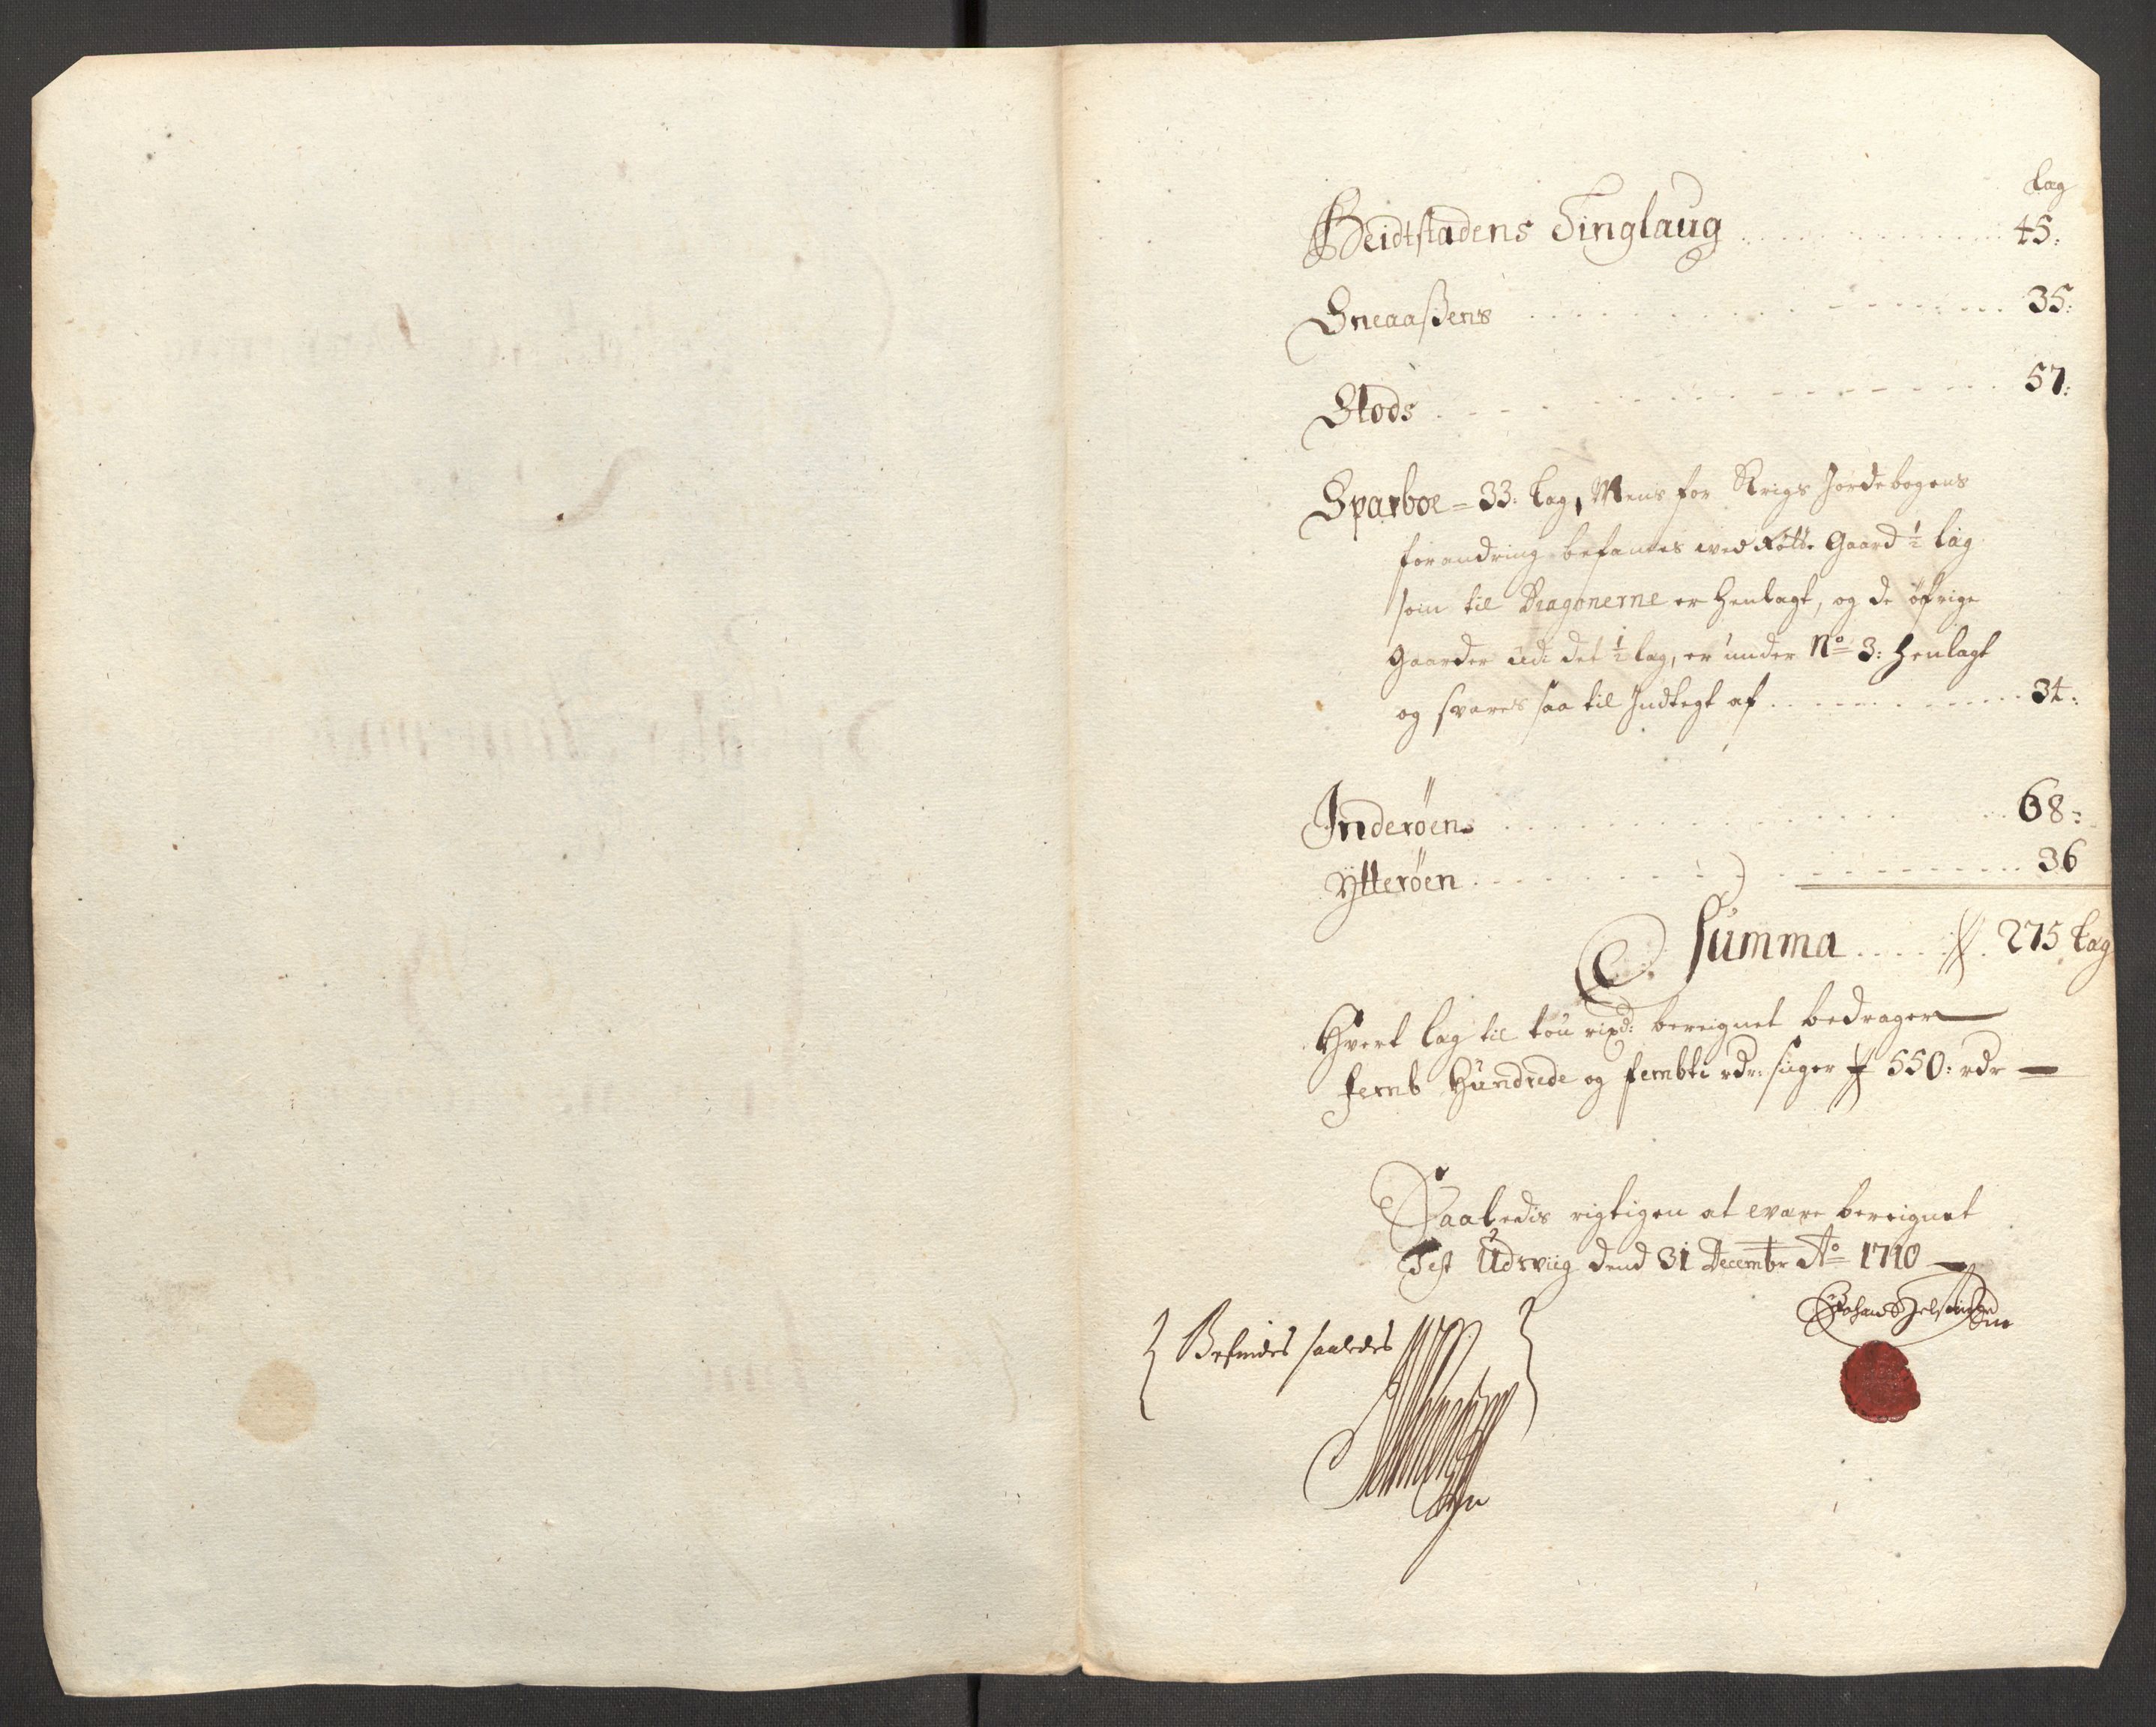 Lag
Beidtstadens Tinglaug 45:
Sneaaßens 35:
Stods 57:
Sparboe = 33: Lag, Mens for Krigs Jordebogens
forandring befantes wed Gaard ½ lag
som til Dragonerne er henlagt, og de öfrige
Gaarder udi det ½ lag, er under No 3: henlagt
og svares saa til Indtegt af 34:
Inderöens 68:
Ytteröen 36
Summa 275 Lag
Hvert lag til tou rixd: bereignet bedrager
femb Hundrede og fembti rdr: siger 550: rdr
Saaledis rigtigen at være bereignet
Test Udsviig dend 31 Decembr Ao 1710
Befindes saaledes